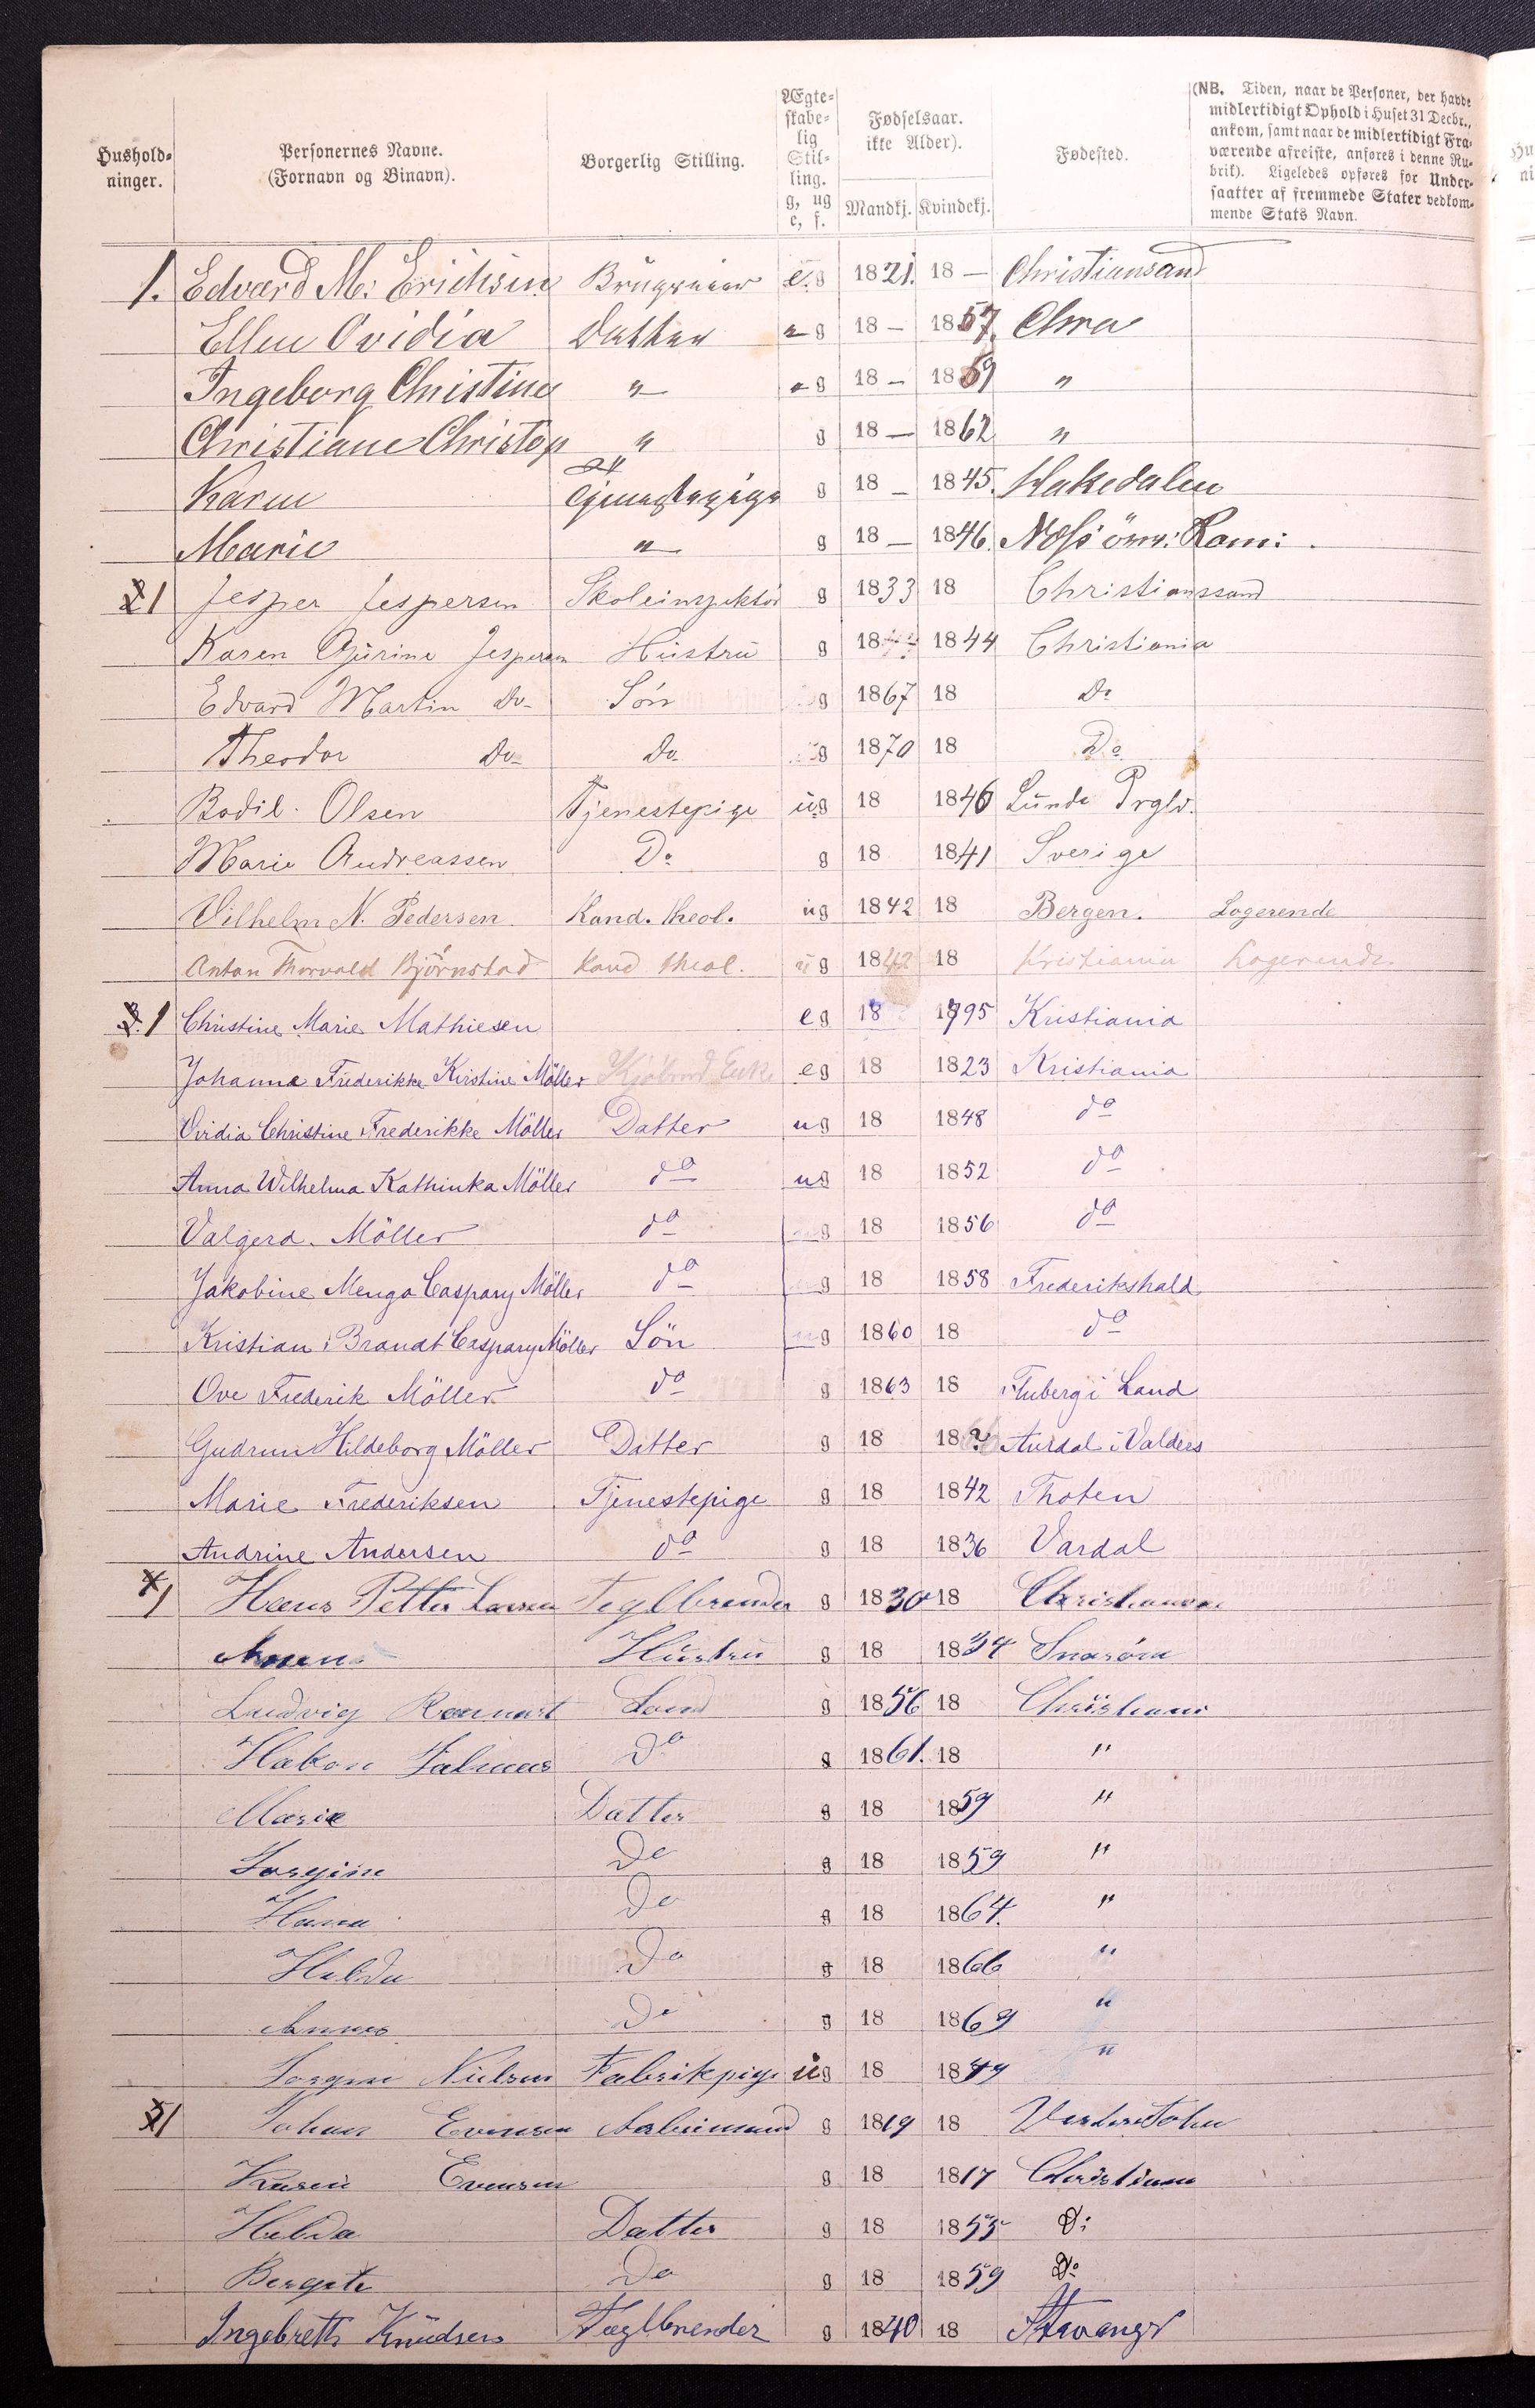 Hushold- ninger.
Personernes Navne. (Fornavn og Binavn).
Borgerlig Stilling.
Ægte- skabe- lig Stil- ling. g, ug e, f.
Fødselsaar. ikke Alder).
Mandkj. Kvindekj.
Fødested.
(NB. Tiden, naar de Personer, der havde
midlertidigt Ophold i Huset 31 Decbr.,
ankom, samt naar de midlertidigt Fra-
værende afreiste, anføres i denne Ru-
brik). Ligeledes opføres for Under-
saatter af fremmede Stater vedkom-
mende Stats Navn.
1. Edvard M: Erichsen e. g 1821. 18 — Christiansand
Ellen Ovidia Datter g 18 — 1857. Chra
Ingeborg Christine " g 18 — 1859 "
Christiane Christop " g 18 — 1862 "
Karen Tjenestepige g 18 — 1845. Hakedalen
Marie " g 18 — 1846.
1 Jesper Jespersen Skoleinspektör g 1833 18 Christianssand
Karen Gurine Jespersen Hustru g 18 1844 Christiania
Edvard Martin Do Sön g 1867 18 Do
Theodor Do Do g 1870 18 Do
Bodil Olsen Tjenestepige ug 18 1846 Lunde Prgld.
Marie Andreassen Do g 18 1841 Sverige
Vilhelm N. Pedersen Kand. theol. ug 1842 18 Bergen. Logerende
Anton Thorvald Bjørnstad Kand theol. ug 1842 18 Kristiania Logerende
1 Christine Marie Mathiesen eg 18 1795 Kristiania
Johanne Frederikke Kirstine Möller Enke eg 18 1823 Kristiania
Ovidia Christine Frederikke Möller Datter ug 18 1848 do
Anna Wilhelma Kathinka Möller do ug 18 1852 do
Valgerd Möller do ug 18 1856 do
Jakobine Mengo Caspary Möller do ug 18 1858 Frederikshald
Kristian Brandt Caspary Möller Sön ug 1860 18 do
Ove Frederik Möller do g 1863 18 Fluberg i Land
Gudrun Hildeborg Möller Datter g 18 18 Aurdal i Valders
Marie Frederiksen Tjenestepige g 18 1842 Thoten
Andrine Andersen do g 18 1836 Vardal
1 Hans Petter Larsen Teglbrender g 1830 18
Hustru g 18 1834 Snaröen
Ludvig g 1856 18 Christiani
Hakon Do g 1861. 18 "
Marie Datter g 18 1859 "
Do g 18 1859 "
Do g 18 1864. "
Hilda Do g 18 1866 "
Do g 18 1869 "
Nielsen Fabrikpige ug 18 1849 "
1 Johan Evensen g 1819 18
Evensen g 18 1817
Hilda Datter g 18 1855 Do
Do g 18 1859 Do
Ingebreth Knudsen Teglbrender g 1840 18 Stavanger